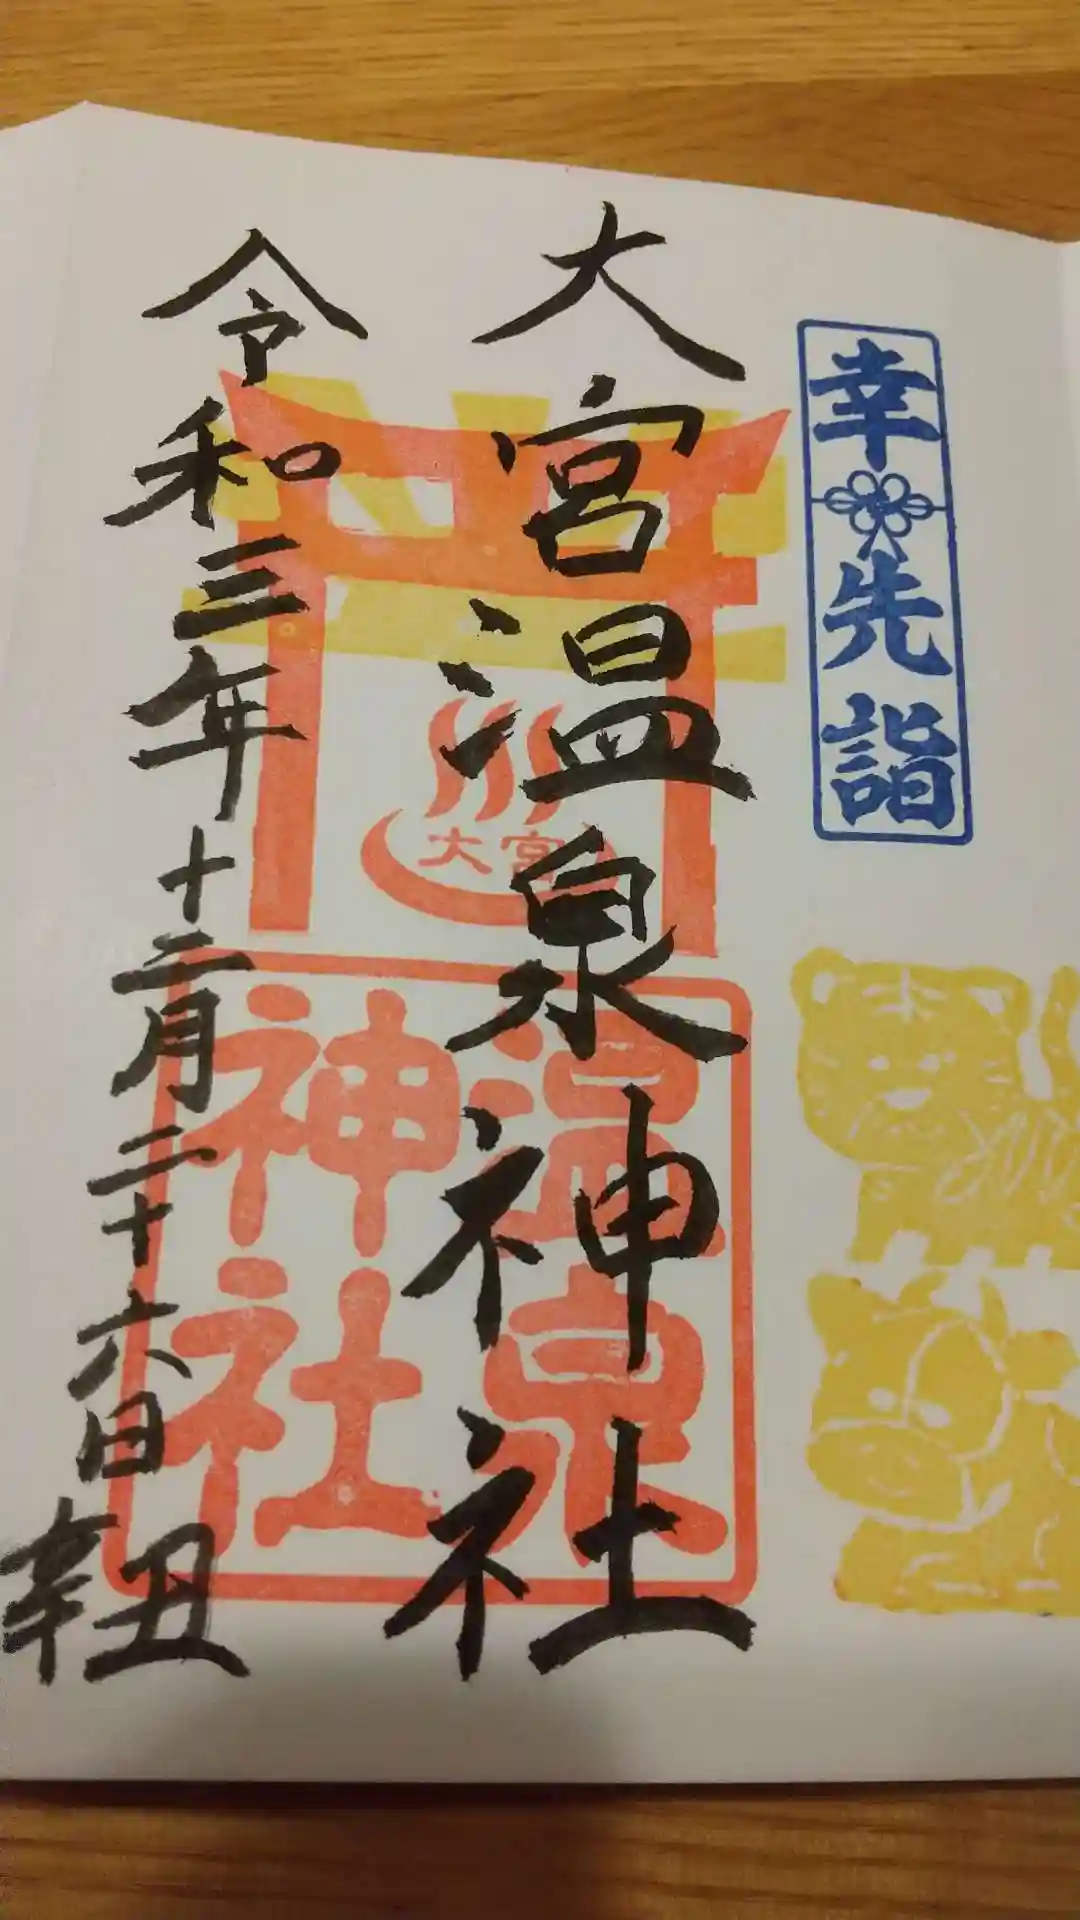 幸先詣
大宮温泉神社
大宮
温泉
神社
令和三年十二月二十六日
辛丑